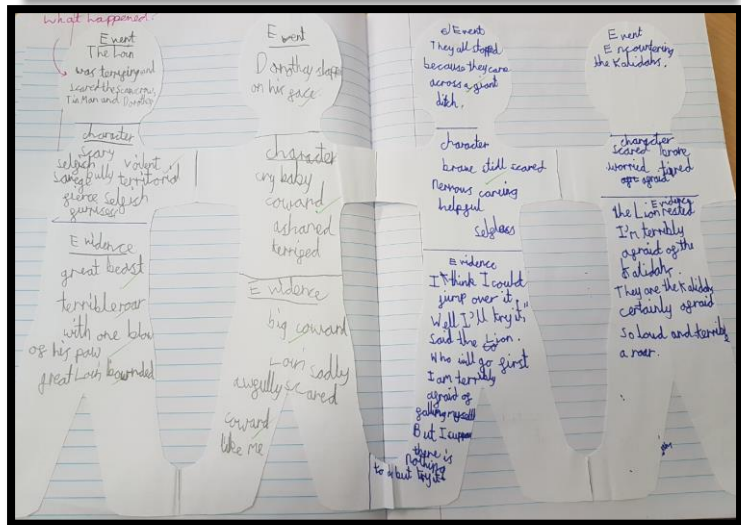 what happened?
Event
The Loin
was terrying and
scared the scarecrow,
Tin Man and Dorothy
character
scary
selgish violent
savage bully territorial
gierce selgish
Evidence
great beast
terrible roar
with one blow
of his paw
great Loin bounded
Event
Dorothy slaps
on his gace
character
cry baby
coward
ashared
terriged
Evidence
big coward
Loin sadly
awgully scared
coward
like me
Event
They all stopped
because they care
across a giant
ditch.
character
brave still scared
nervous careing
helpgul
selgless
Evidence
I think I could
jump over it,
Well I'll try it,"
said the Lion.
Who will go first
I am terribly
agraid of
galling myself
But I suppose
there is
nothing
to a but try it
Event
Encountering
the Kalidahs.
character
scared brave
worried tired
agraid
Evidence
the Lion rested
I'm terribly
agraid of the
Kalidahs.
They are the Kalidahs
certainly agraid
So loud and terrible
a roar.